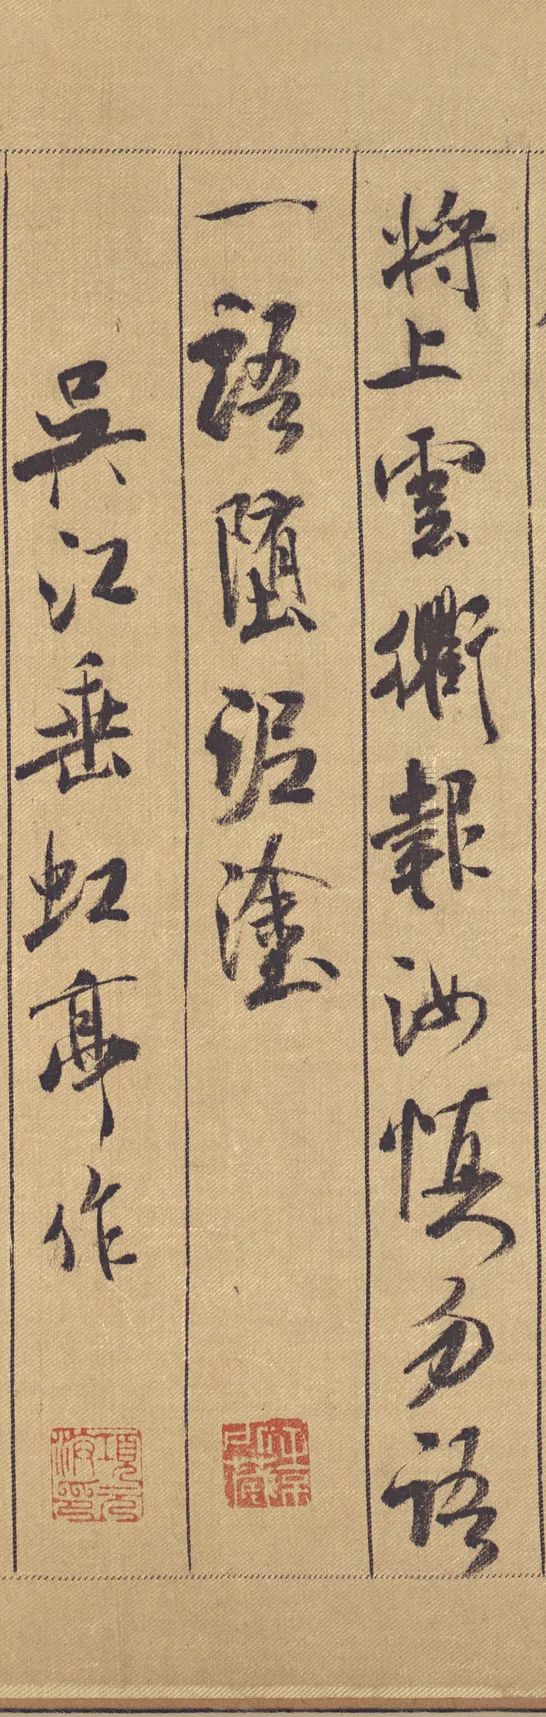 將上雲衢報汝慎勿語
一語堕泥塗
吳江垂虹亭作